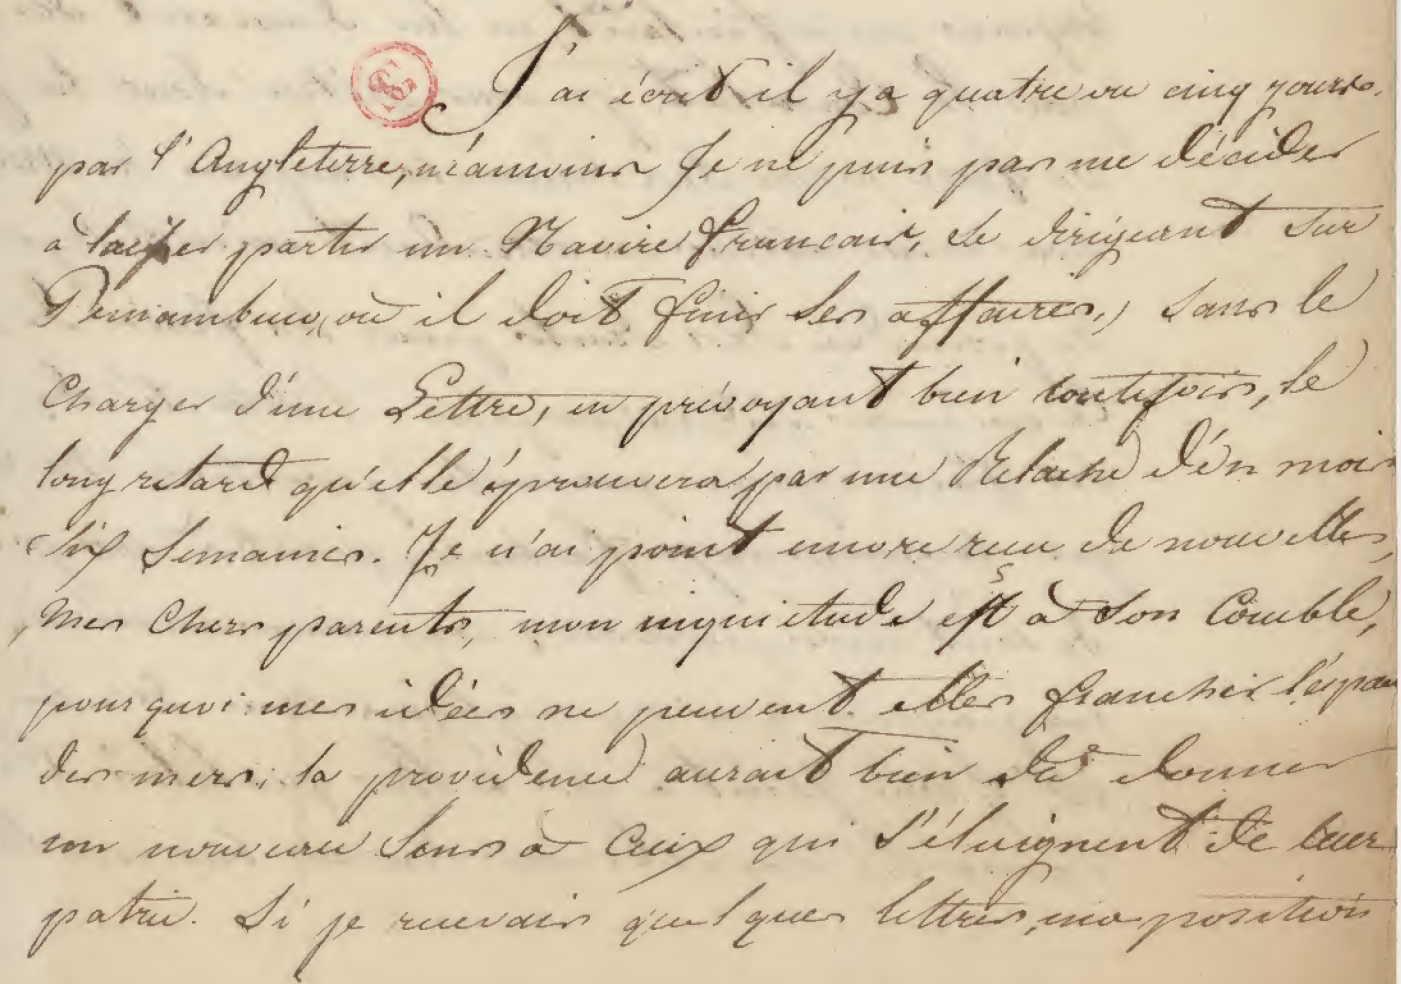 J'ai écrit il y a quatre ou cinq jours,
par l'Angleterre, néamoins Je ne puis pas me décider
à laisser partir un Navire francais, se dirigeant sur
Pernambuco, où il doit finir ses affaires, sans le
Charger d'une Lettre, en prévoyant bien toutefois, le
long retard qu'elle éprouvera par une Relache d'un mois
Six Semaines. Je n'ai point encore recu de nouvelles,
Mes Chers parents, mon inquietude est à son Comble,
pourquoi mes idées ne peuvent elles franchir l'espace
des mers, la providence aurait bien dû donner
un nouveau Sens à Ceux qui S'éloignent de leur
patrie. Si je recevais quelques lettres, ma position